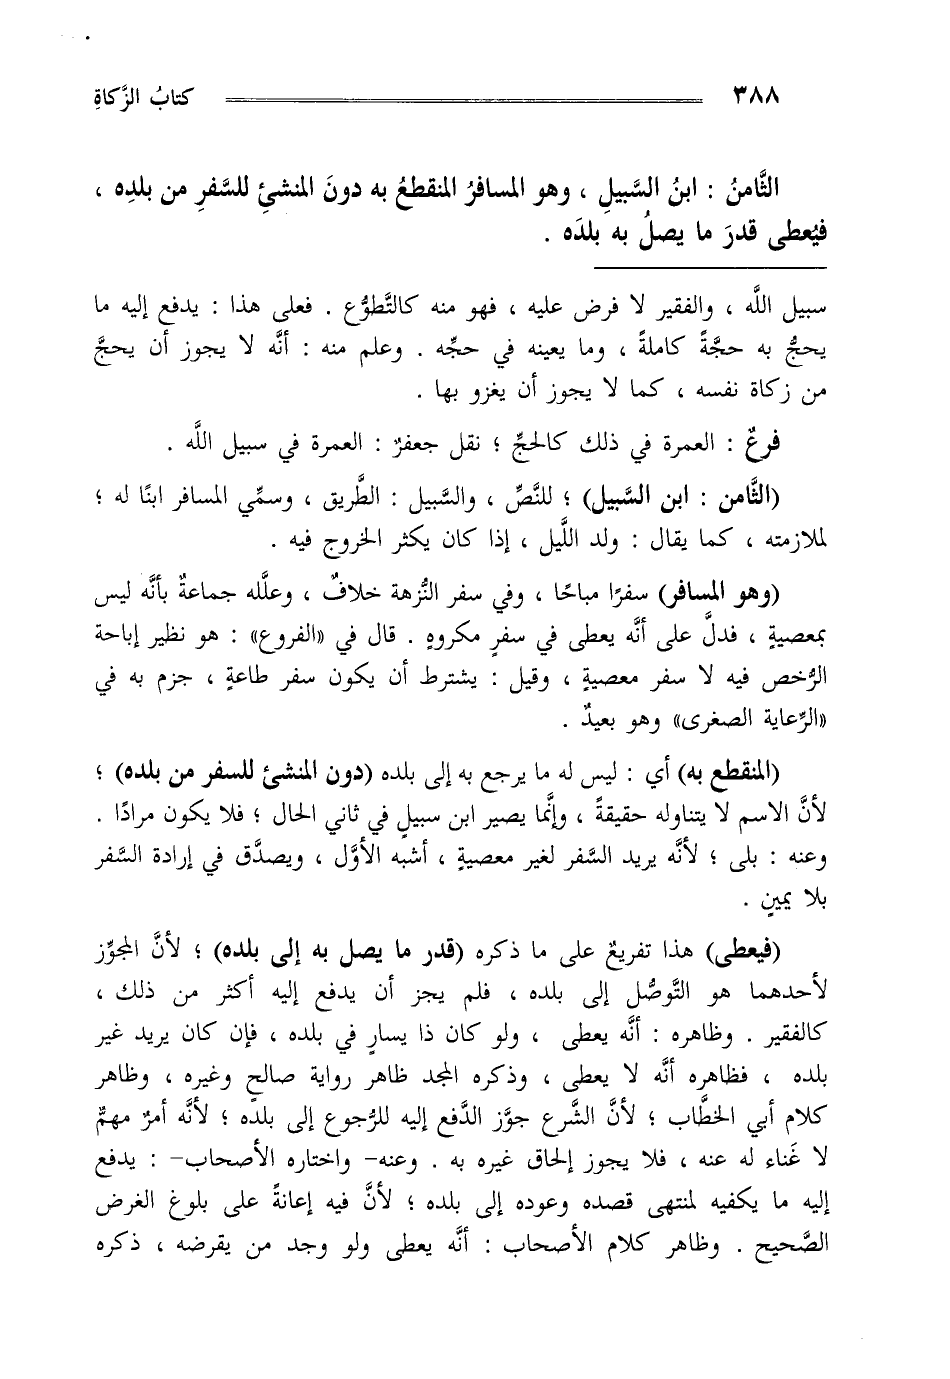 ٣٨٨ كتابُ الزَّكاةِ
الثَّامنُ : ابنُ السَّبيلِ ، وهو المسافرُ المنقطعُ به دونَ المنشئِ للسَّفرِ من بلدِه ،
فيُعطى قدرَ ما يصلُ به بلدَه .
سبيل اللَّه ، والفقير لا فرض عليه ، فهو منه كالتَّطوُّع . فعلى هذا : يدفع إليه ما
يحجُّ به حجَّةً كاملةً ، وما يعينه في حجِّه . وعلم منه : أنَّه لا يجوز أن يحجَّ
من زكاة نفسه ، كما لا يجوز أن يغزو بها .
فرعٌ : العمرة في ذلك كالحجِّ ؛ نقل جعفرٌ : العمرة في سبيل اللَّه .
(الثَّامن : ابن السَّبيل) ؛ للنَّصِّ ، والسَّبيل : الطَّريق ، وسمِّي المسافر ابنًا له ؛
لملازمته ، كما يقال : ولد اللَّيل ، إذا كان يكثر الخروج فيه .
(وهو المسافر) سفرًا مباحًا ، وفي سفر النُّزهة خلافٌ ، وعلَّله جماعةٌ بأنَّه ليس
بمعصيةٍ ، فدلَّ على أنَّه يعطى في سفرٍ مكروهٍ . قال في «الفروع» : هو نظير إباحة
الرُّخص فيه لا سفر معصيةٍ ، وقيل : يشترط أن يكون سفر طاعةٍ ، جزم به في
«الرِّعاية الصغرى» وهو بعيدٌ .
(المنقطع به) أي : ليس له ما يرجع به إلى بلده (دون المنشئ للسفر من بلده) ؛
لأنَّ الاسم لا يتناوله حقيقةً ، وإنَّما يصير ابن سبيلٍ في ثاني الحال ؛ فلا يكون مرادًا .
وعنه : بلى ؛ لأنَّه يريد السَّفر لغير معصيةٍ ، أشبه الأوَّل ، ويصدَّق في إرادة السَّفر
بلا يمينٍ .
(فيعطى) هذا تفريعٌ على ما ذكره (قدر ما يصل به إلى بلده) ؛ لأنَّ المجوِّز
لأحدهما هو التَّوصُّل إلى بلده ، فلم يجز أن يدفع إليه أكثر من ذلك ،
كالفقير . وظاهره : أنَّه يعطى ، ولو كان ذا يسارٍ في بلده ، فإن كان يريد غير
بلده ، فظاهره أنَّه لا يعطى ، وذكره المجد ظاهر رواية صالحٍ وغيره ، وظاهر
كلام أبي الخطَّاب ؛ لأنَّ الشَّرع جوَّز الدَّفع إليه للرُّجوع إلى بلده ؛ لأنَّه أمرٌ مهمٌّ
لا غَناء له عنه ، فلا يجوز إلحاق غيره به . وعنه- واختاره الأصحاب- : يدفع
إليه ما يكفيه لمنتهى قصده وعوده إلى بلده ؛ لأنَّ فيه إعانةً على بلوغ الغرض
الصَّحيح . وظاهر كلام الأصحاب : أنَّه يعطى ولو وجد من يقرضه ، ذكره